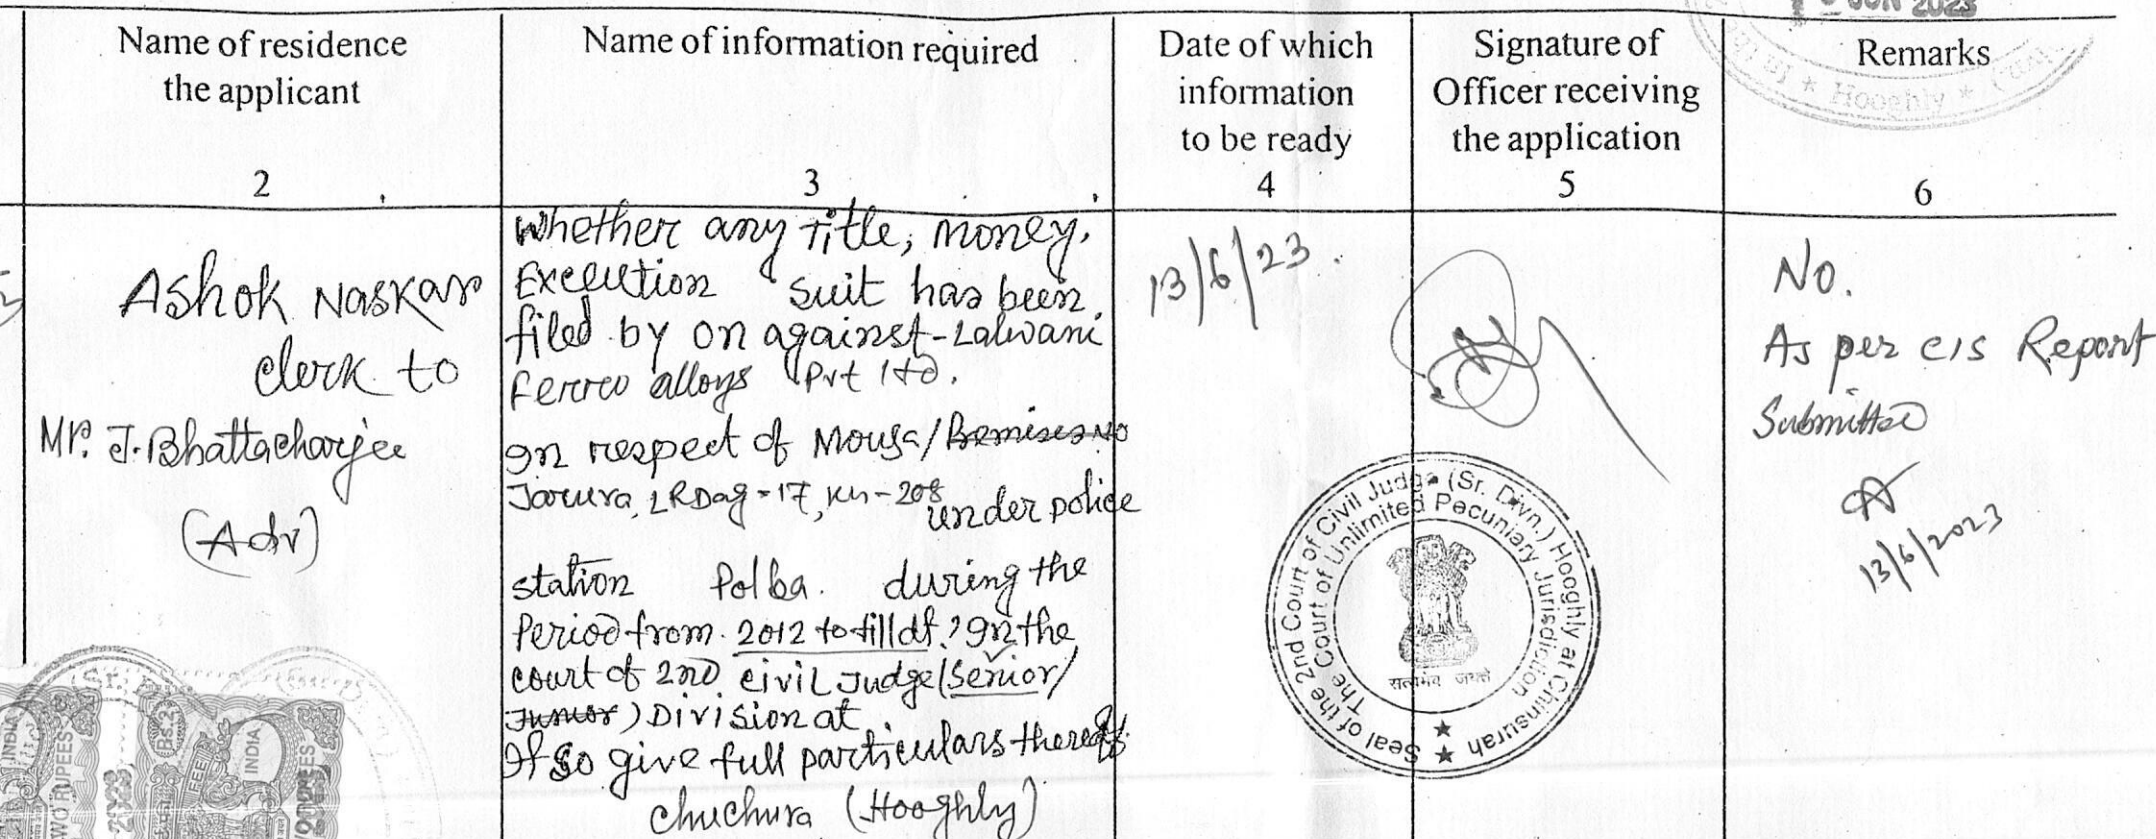 JUN 2023
Name of residence
the applicant
2
Name of information required
3
Date of which
information
to be ready
4
Signature of
Officer receiving
the application
5
Remarks
6
★ Hooghly ★
Ashok Naskar
clerk to
Mr. J. Bhattacharjee
(Adv)
Whether any Title, money,
Execution suit has been
filed by on against - Lalwani
Ferro alloys Pvt ltd.
In respect of Mouza/Premises No
Jarura, LR Dag - 17, kh - 208 under police
station Polba. during the
Period from 2012 to till dt? In the
court of 2nd civil Judge (Senior/
Junior) Division at
If so give full particulars thereof.
Chuchura (Hooghly)
13/6/23.
No.
As per CIS Report
Submitted
13/6/2023
Seal of the 2nd Court of Civil Judge (Sr. Divn.) Hooghly at Chinsurah
The Court of Unlimited Pecuniary Jurisdiction
सत्यमेव जयते
★ ★
INDIA
TWO RUPEES
Rs.2
FEE
INDIA